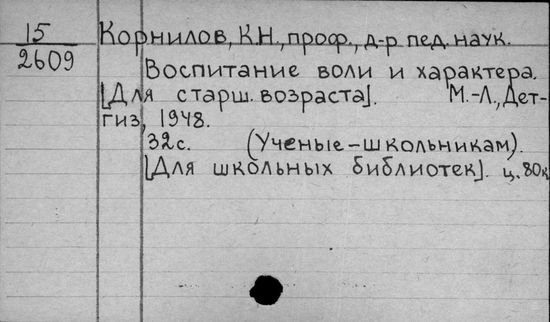 15
2609
Корнилов, К.Н., проф., д-р пед. наук.
Воспитание воли и характера.
[Для старш. возраста]. М.-Л., Дет-
гиз, 1948.
32 с. (Ученые-школьникам).
[Для школьных библиотек]. ц. 80к